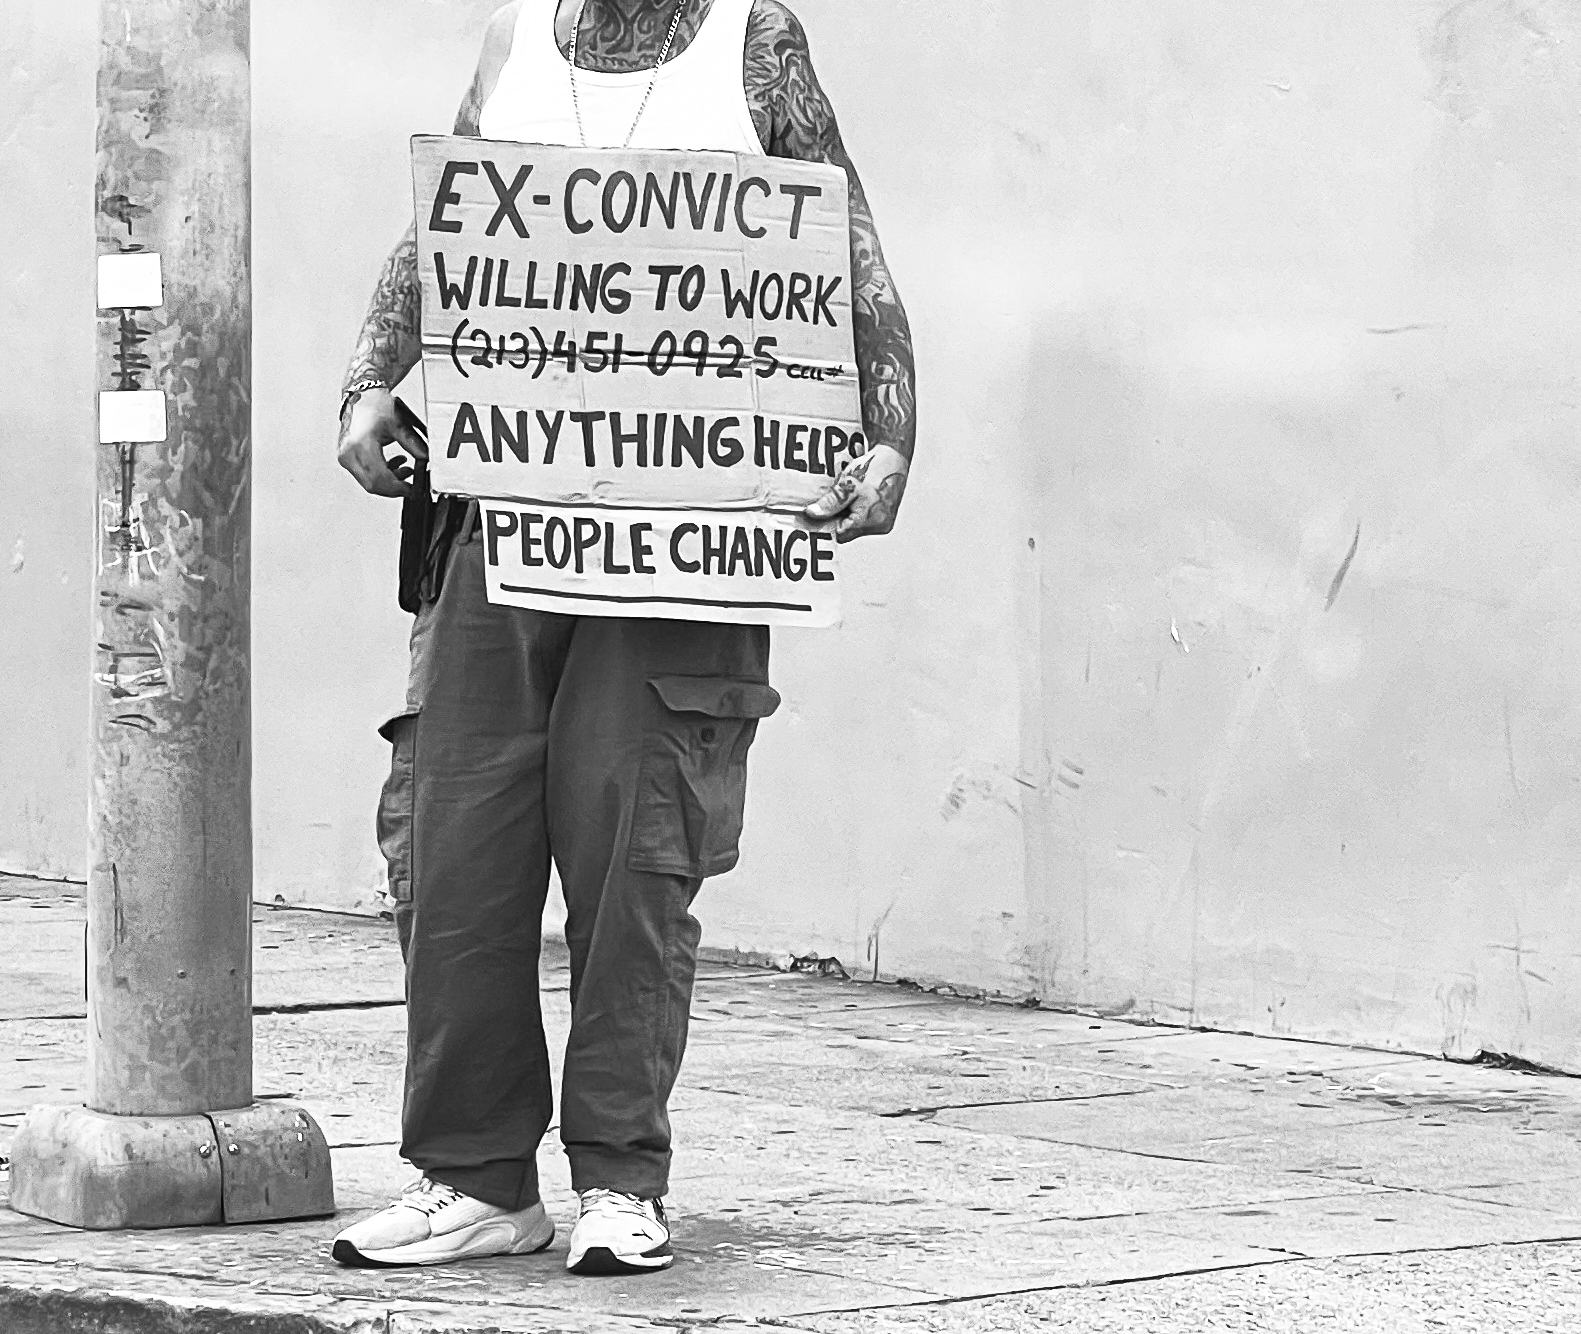 EX-CONVICT
WILLING TO WORK
(213)451-0925 CELL#
ANYTHING HELPS
PEOPLE CHANGE